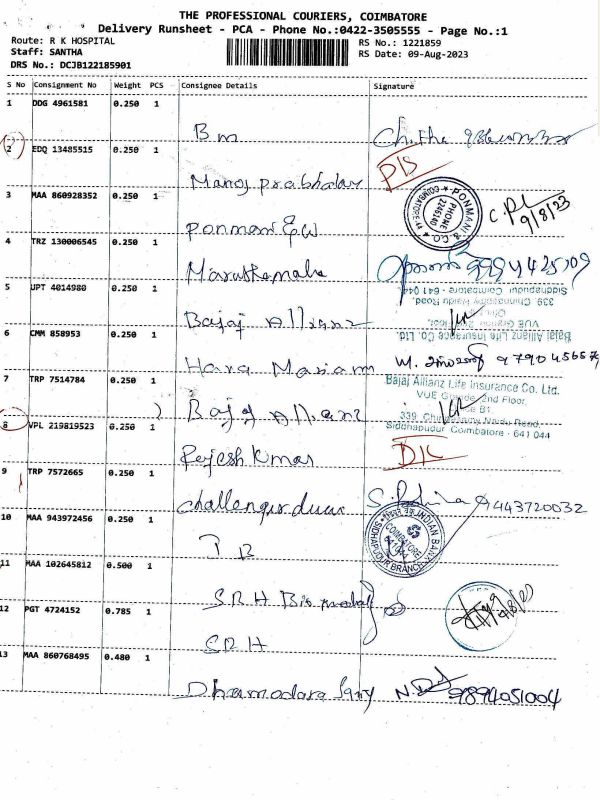 THE PROFESSIONAL COURIERS, COIMBATORE
Delivery Runsheet - PCA - Phone No.:0422-3505555 - Page No.:1
Route: R K HOSPITAL
RS No.: 1221859
Staff: SANTHA
RS Date: 09-Aug-2023
DRS No.: DCJB122185901
S No Consignment No Weight PCS Consignee Details Signature
1 DDG 4961581 0.250 1
Bm
2 EDQ 13485515 0.250 1
Manoj prabhakar
3 MAA 860928352 0.250 1
PONMANI & CO
PHONE
2245140
COIMBATORE
9/8/23
Ponmani & Co
4 TRZ 130006545 0.250 1
5 JPT 4014980 0.250 1
Bajaj Allianz Life Insurance Co. Ltd.
Bajaj Allianz
6 CMM 858953 0.250 1
7 TRP 7514784 0.250 1
Bajaj Allianz Life Insurance Co. Ltd.
VUE Grande, 2nd Floor,
339, Chinnasamy Naidu Road,
Siddhapudur, Coimbatore - 641 044
Bajaj Allianz
8 VPL 219819523 0.250 1
Rajesh Kumar
9 TRP 7572665 0.250 1
9443720032
10 MAA 943972456 0.250 1
INDIAN BANK
COIMBATORE
SIDHAPUDUR BRANCH
11 MAA 102645812 0.500 1
SRH
12 PGT 4724152 0.785 1
SRH
13 MAA 860768495 0.480 1
9894051004